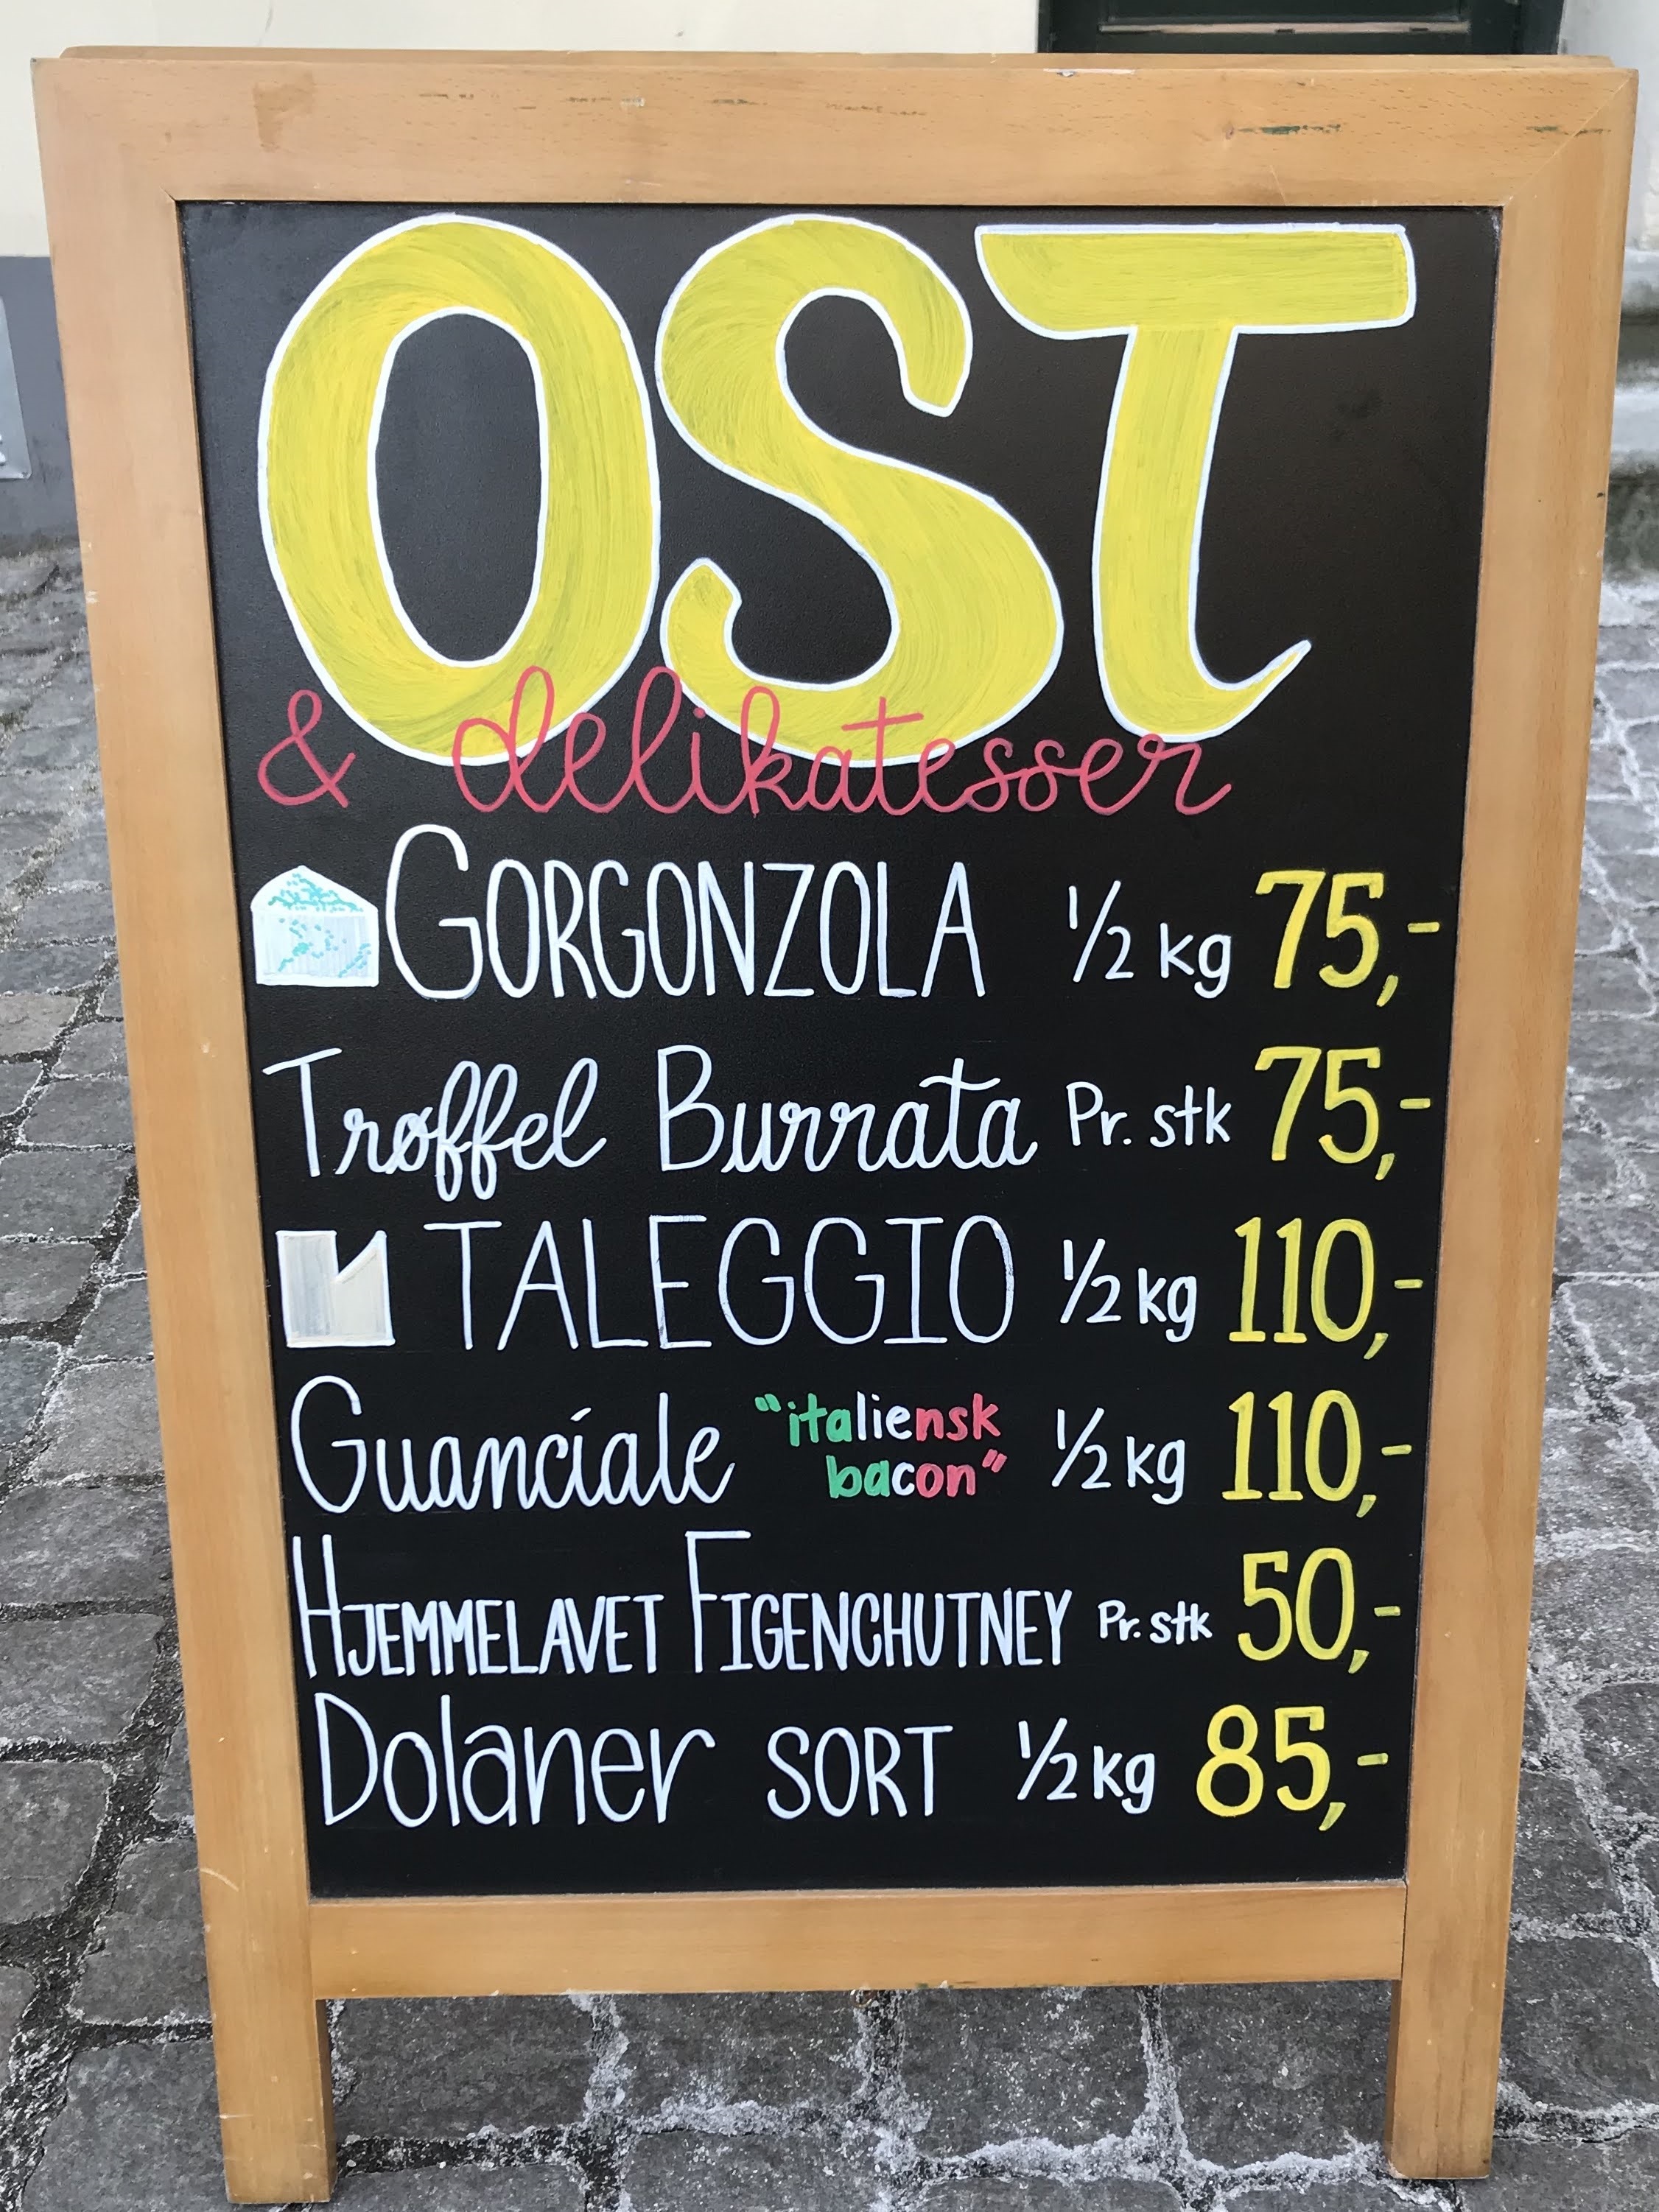 OST
& delikatesser
GORGONZOLA ½ kg 75,-
Trøffel Burrata Pr. stk 75,-
TALEGGIO ½ kg 110,-
Guanciale "italiensk bacon" ½ kg 110,-
HJEMMELAVET FIGENCHUTNEY Pr. stk 50,-
Dolaner SORT ½ kg 85,-